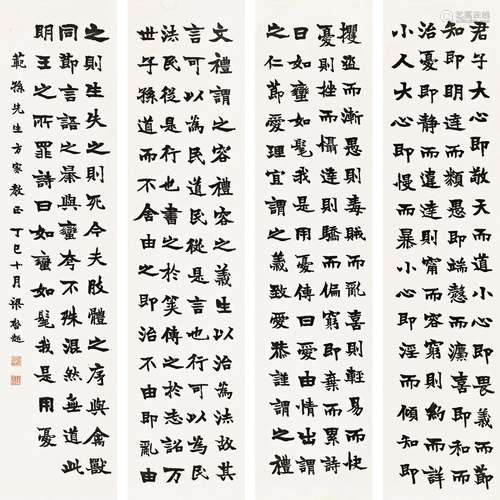 君子大心即敬天而道小心即畏義而節
知即明達而類愚即端愨而灋喜即和而
治憂即静而違達則甯而容窮則約而詳
小人大心即慢而暴小心即淫而傾知即
攫盜而漸愚則毒賊而亂喜則輕易而快
憂則挫而懾達則驕而偏窮則棄而累詩
曰如蠻如髦我是用憂愛由情出謂
之仁節愛理宜謂之義致愛恭謹謂之禮
文禮謂之容禮容之義生以治為法故其
言可以為民道民從是言也行可以為民
法民從是行也書之於筴傳之於志詒万
世子孫道而不舍由之即治不由即亂由
之則生失之則死今夫肢體之序與禽獸
同節言語之暴與蠻夸不殊混然無道此
明王之所罪詩曰如蠻如髦我是用憂
範孫先生方家教正丁巳十月梁啟超